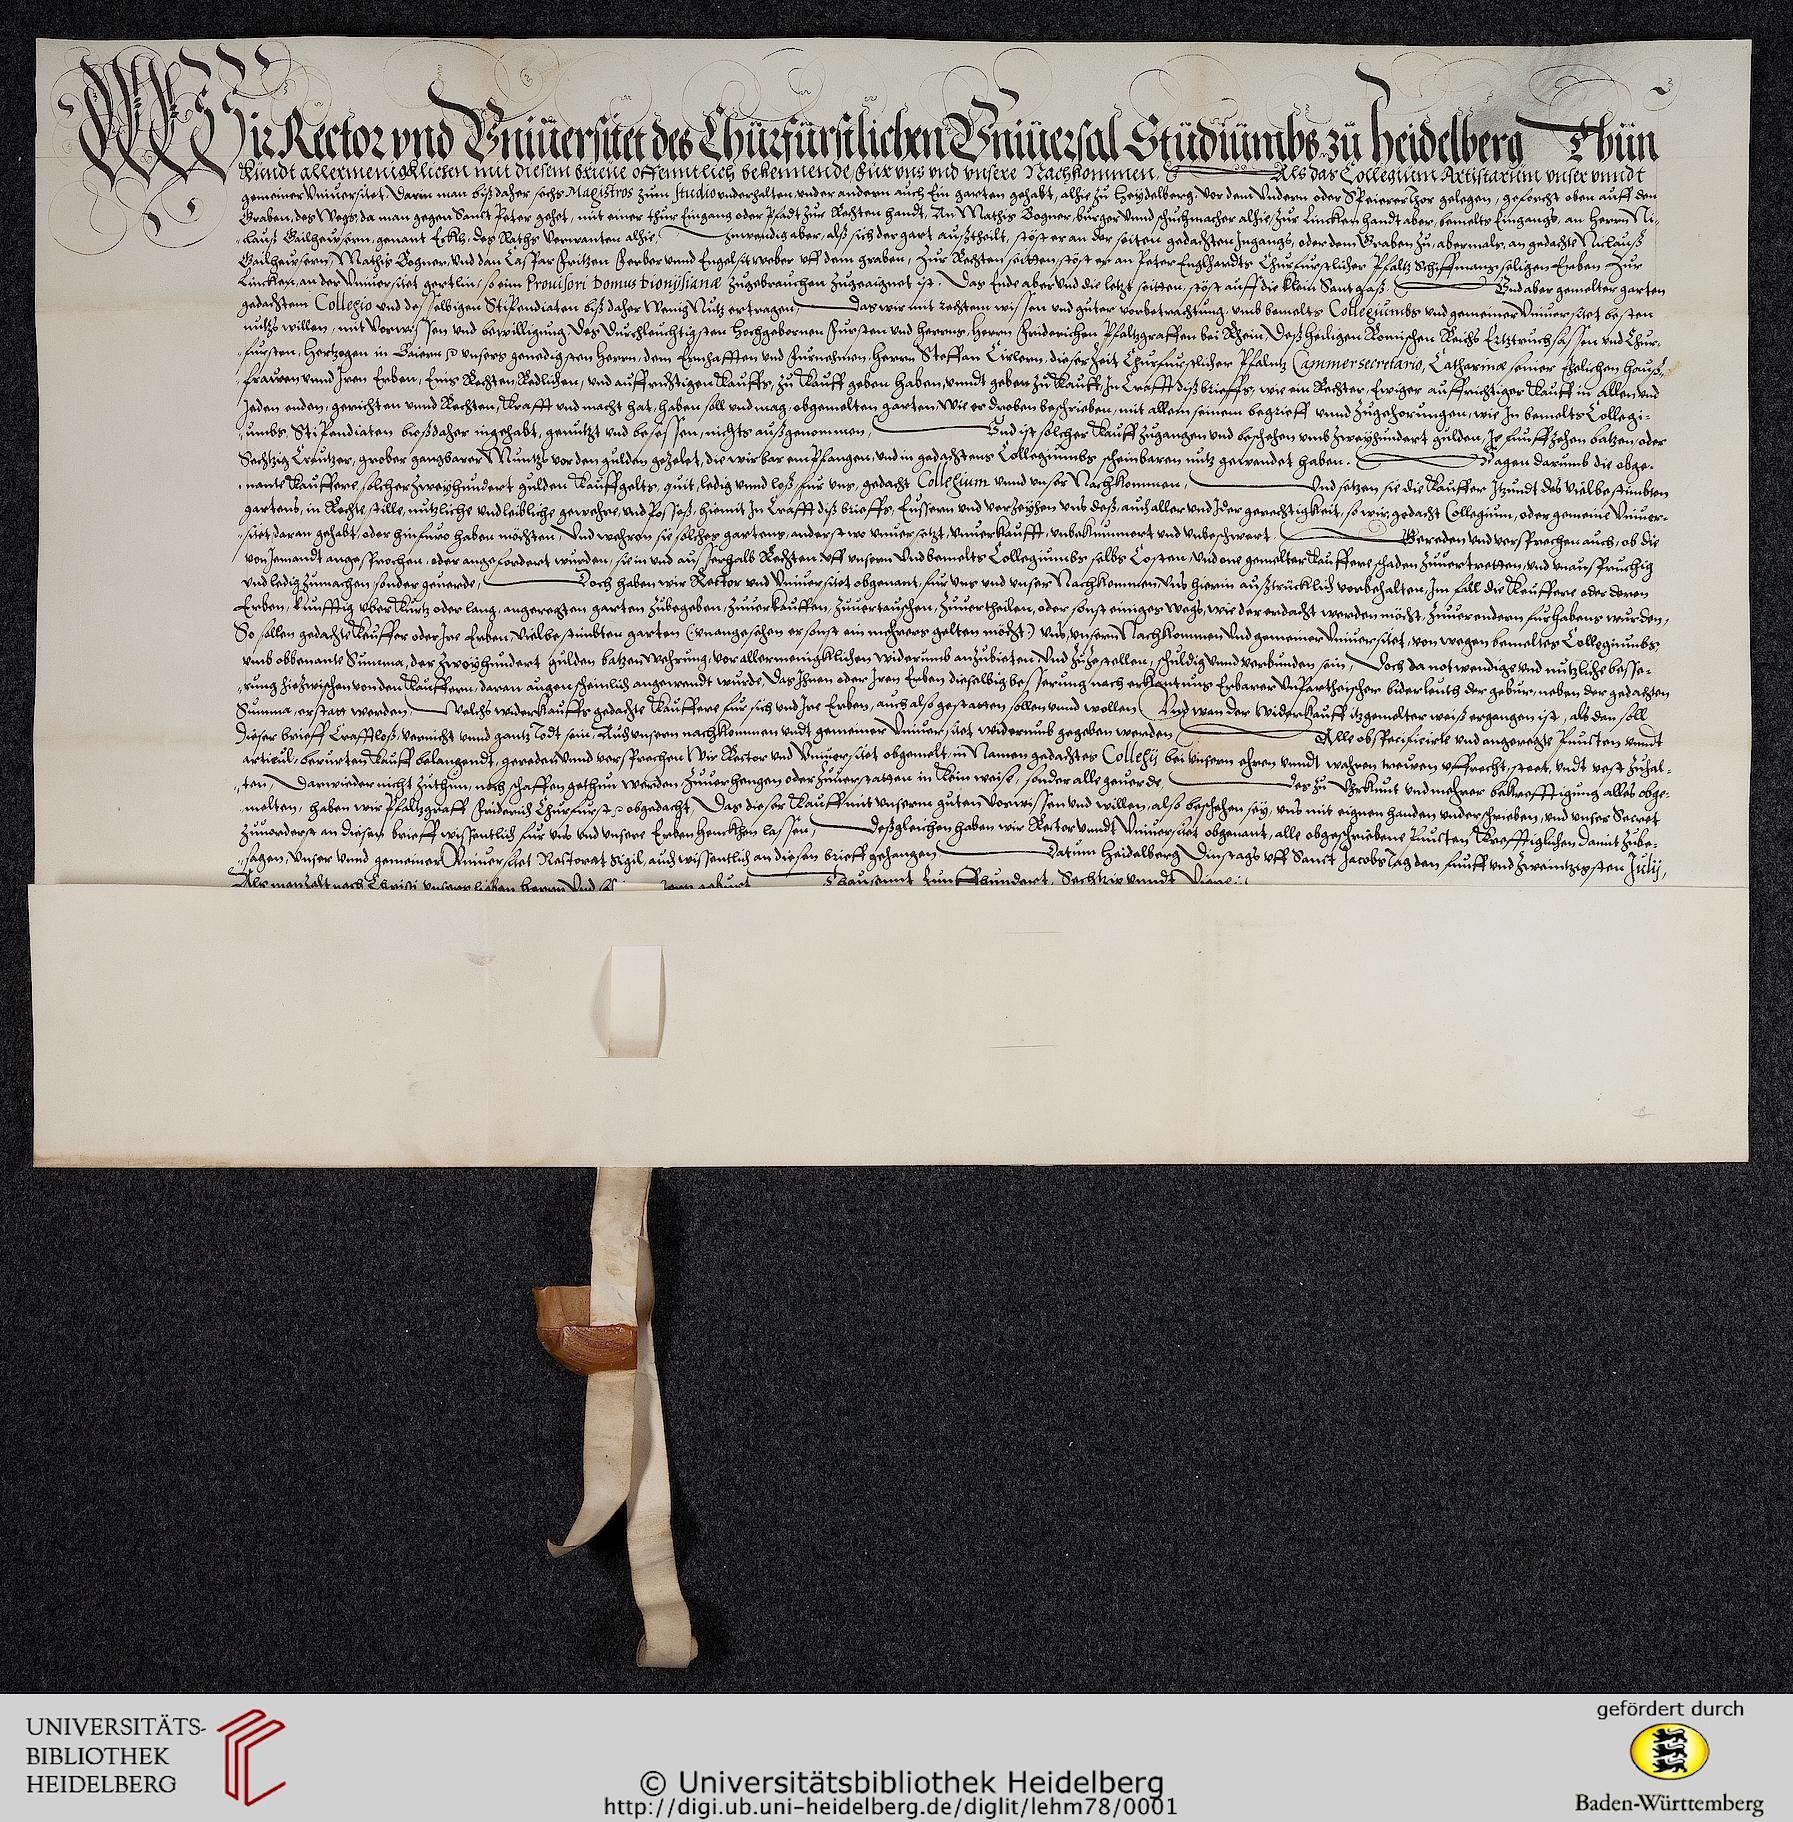 Wir Rector vnd Vniuersitet des Churfürstlichen Vniuersal Studiumbs zu Heidelberg Thun
Kundt allermenigklichen mit diesem brieue offenntlich bekennende, Für vns vnd vnsere Nachkommen, Als das Collegium Artistarum vnser vnndt
gemeiner Vniuersitet, Darin man bißdaher sechs Magistros zum studio vnderhalten, vnder andern auch Ein garten gehabt, alhie zu Heydelberg, Vor dem Vndern oder Speierer Thor gelegen, geforcht oben auff den
Graben, des Wegs, da man gegen Sanct Peter gehet, mit einer thür Eingang oder Pfadt zur Rechten handt, An Mathis Bogner, burger vnnd schuchmacher alhie, zur Lincken handt aber, bemelts Eingangs, an Herrn Ni-
clauß Gailheusern, genant Erkly, des Raths Verwanten alhie, Inwendig aber, alß sich der gart außtheilt, stöst er an der seiten gedachten Ingangs, oder dem Graben zu, abermals, an gedachte Niclauß
Gailheusern, Mathis Bogner, Vnd dan Caspar Fritzen Ferber vnnd Engel sitweber vff dem graben, Zur Rechten seitten stöst er an Peter Englhardts Churfurstlicher Pfaltz Schiffmans seligen Erben Zur
Lincken, an der Vniuersitet gertlin, so eim Prouisori Domus Dionysianæ zugebrauchen zugeaignet ist. Das Ende aber vnd die letzt seitten, stöst auff die klein Santgaß. Vnd aber gemelter garten
gedachtem Collegio vnd desselbigen Stipendiaten biß daher Wenig Nutz ertragen, Das wir mit rechtem wissen vnd guter vorbetrachtung, vmb bemelts Collegiumbs vnd gemeiner Vniuersitet besten
nutzs willen, mit Vorwissen vnd bewilligung Des Durchleuchtigsten Hochgebornen Fursten vnd Herrns, Herrn Friderichen Pfaltzgraffen bei Rhein, Deß Heiligen Romischen Reichs Ertztruchsassen vnd Chur-
fursten, Hertzogen in Baiern &c. vnsers genedigsten Herrn, dem Ernhafften vnd Furnehmen, Herrn Steffan Cirlern, dieser Zeit Churfurstlicher Pfaltz Cammersecretario, Catharinæ seiner Ehelichen Hauß-
frawen vnnd Iren Erben, Eins Rechten Redlichen, vnd auffrichtigen Kauffs, zu Kauff geben haben, vnndt geben zu Kauff, In Crafft diß brieffs, wie ein Rechter, Ewiger auffrichtiger Kauff in allen vnd
Jeden enden, gerichten vnnd Rechten, Krafft vnd macht hat, haben soll vnd mag, obgemelten garten, Wie er droben beschrieben, mit allem seinem begrieff vnnd Zugehorungen, wie In bemelts Collegi-
umbs, Stipendiaten bießdaher ingehabt, genutzt vnd besessen, nichts außgenommen, Vnd ist solcher Kauff zugangen vnd beschehen vmb Zweyhundert gulden, Je funffzehen batzen, oder
Sechtzig Creutzer, grober gangbarer Muntz vor den gulden gezelet, die wir bar empfangen, vnd in gedachtens Collegiumbs scheinbaren nutz gewendet haben. Sagen darumb die obge-
nante Kauffere, solcher zweyhundert gulden Kauffgelts, quit, ledig vnnd loß, fur vns, gedacht Collegium vnnd vnser Nachkommen, Vnd setzen sie die Kauffer Itzundt des vielbestimbten
gartens, in Rechte stille, nützliche vnd leibliche gewehre, vnd Posseß, hiemit In Crafft diß brieffs, Eussern vnd verzeyhen vns deß, auch aller vnd Jder gerechtigkeit, so wir, gedacht Collegium, oder gemeine Vniuer-
sitet, daran gehabt, oder hinfuro haben möchten, Vnd wehren sie solches gartens, anderst wo vnuersetzt, vnuerkaufft, vnbekummert vnd vnbeschwert. Gereden vnd versprechen auch, ob die
von Jemandt angesprochen, oder angefordert wurden, sie in vnd ausserhalb Rechten, vff vnsern Vnd bemelts Collegiumbs selbs Costen, Vnd one gemelter Kauffere schaden zuuertretten, vnd vnanspruchig
vnd ledig zumachen, sonder geuerde, Doch haben wir Rector vnd Vniuersitet obgenant, für vns vnd vnser Nachkommen, Vns hierin außtrücklich vorbehalten, Im fall die Keuffere oder deren
Erben, kunfftig vber kurtz oder lang, angeregten garten zubegeben, zuuerkauffen, zuuertauschen, zuuertheilen, oder sonst einiges Wegs, wie der erdacht werden möcht, zuuerendern furhabens wurden,
So sollen gedachte Keuffer oder Ire Erben, Vielbestimbten garten (vnangesehen er sonst ein mehrers gelten möcht) vns, vnsern Nachkommen Vnd gemeiner Vniuersitet, von wegen bemeltes Collegiumbs,
vmb obbenante Summa, der zweyhundert gulden batzen Wehrung, vor allermenigklichen widerumb anzubieten, Vnd zuzestellen, schuldig vnnd verbunden sein, Doch da notwendige vnd nutzliche besse-
rung hiezwischen von den Kauffern, daran augenscheinlich angewendt wurde, Das Ihnen oder Iren Erben dieselbig besserung nach erkantnus Erbarer Vnpartheischer biderleuth der gebur, neben der gedachten
Summa, erstatt werden, Welchs widerkauffs gedachte Kauffere fur sich vnd Ire Erben, auch also gestatten sollen vnnd wollen, Vnd wan der Widerkauff itzgemelter weiß ergangen ist, als dan soll
dieser brieff Crafftloß, vernicht vnnd gantz Todt sein, Auch vnsern nachkommen vndt gemeiner Vniuersitet widerumb gegeben werden, Alle obspecificirte vnd angeregte Puncten vnndt
articul, berurten Kauff belangendt, gereden vnnd versprechen Wir Rector vnd Vniuersitet obgemelt, in Namen gedachtes Collegij bei vnsern ehren vnndt wahren trewen vffrecht, steet, vndt vest zuhal-
ten, Darwieder nicht zuthun, noch schaffen gethun werden, zuuerhengen oder zuuerstatten in kein weise, sonder alle geuerde, Des zu Vrkunt vnd mehrer bekrefftigung alles obge-
melten, haben wir Pfaltzgraff Friderich Churfurst &c. obgedacht, Das dieser Kauff mit vnserm guten Vorwissen vnd willen, also beschehen sey, vns mit eignen handen vnderschrieben, vnd vnser Secret
zuuorderst an diesem brieff wissentlich fur vns vnd vnsere Erben hencken lassen, Deßgleichen haben wir Rector vnndt Vniuersitet obgenant, alle obgeschriebene Puncten Krefftiglichen damit zube-
sagen, Vnser vnnd gemeiner Vniuersitet Rectorat Sigil, auch wissentlich an diesen brieff gehangen, Datum Heidelberg Dinstags vff Sanct Jacobs Tag den funff vnd zweintzigsten July,
Als man zalt nach Christi vnsers lieben herrn Vnd geburt Thausennt Funffhundert, Sechtzig vnndt
UNIVERSITÄTS-
BIBLIOTHEK
HEIDELBERG
© Universitätsbibliothek Heidelberg
http://digi.ub.uni-heidelberg.de/diglit/lehm78/0001
gefördert durch
Baden-Württemberg